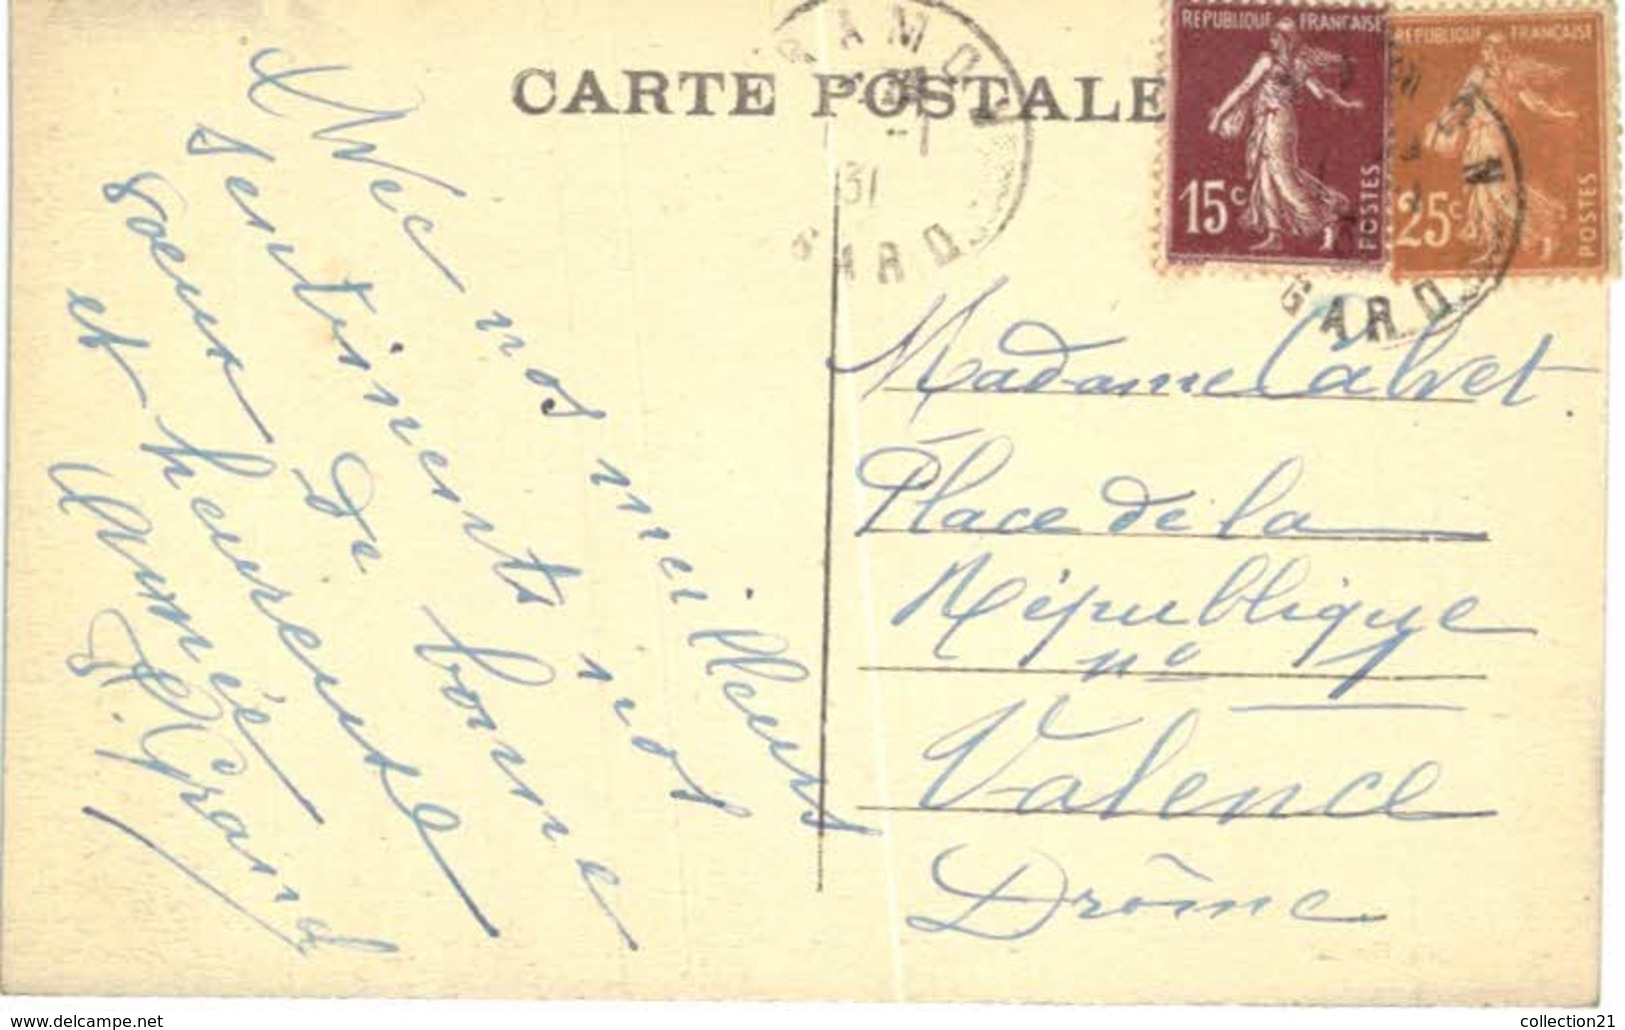 CARTE POSTALE
REPUBLIQUE FRANÇAISE
15c
POSTES
REPUBLIQUE FRANÇAISE
25c
POSTES
ARAMON
31
GARD
ARAMON
GARD
Avec nos meilleurs
sentiments nos
voeux de bonne
et heureuse
année
Grand
Madame Calvet
Place de la
République
n° 1
Valence
Drôme
www.delcampe.net
collection21